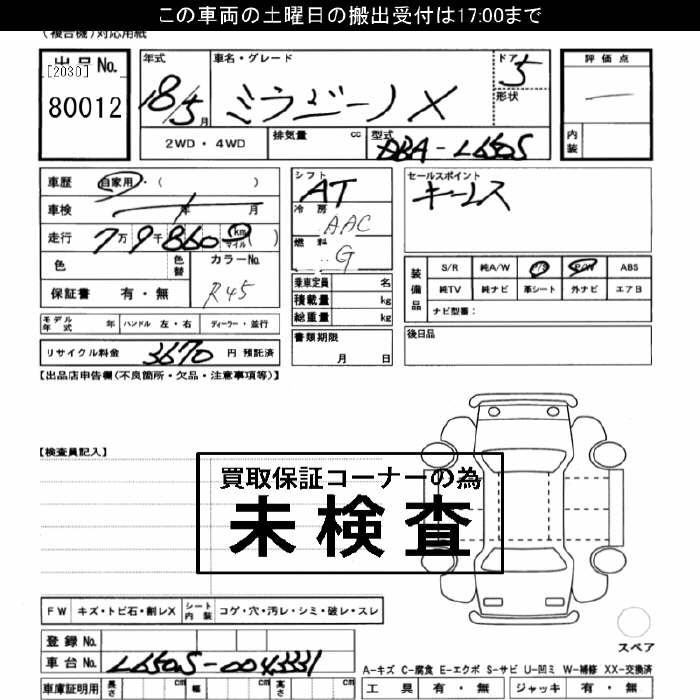 この車両の土曜日の搬出受付は17:00まで
(複合機)対応用紙
出品No.
[2030]
80012
年式
18/5月
車名・グレード
ミラジーノ X
ドア
5
形状
2WD・4WD
排気量 cc
型式
DBA-L650S
評価点
内装
車歴 自家用・( )
車検 年 月
走行 7万9千860 km マイル ( )
色 色替
カラーNo.
R45
保証書 有・無
シフト
AT
冷房
AAC
燃料
G
乗車定員 名
積載量 kg
総重量 kg
書類期限
月 日
セールスポイント
キーレス
装備品
S/R 純A/W P/S P/W ABS
純TV 純ナビ 革シート 外ナビ エアB
ナビ型番:
後日品
モデル年式 年 ハンドル 左・右 ディーラー・並行
リサイクル料金 3670 円 預託済
【出品店申告欄(不良箇所・欠品・注意事項等)】
【検査員記入】
買取保証コーナーの為
未検査
FW キズ・トビ石・割レX シート内装 コゲ・穴・汚レ・シミ・破レ・スレ
登録No.
車台No. L650S-0043331
車庫証明用 長さ cm 幅 cm 高さ cm
スペア
A-キズ C-腐食 E-エクボ S-サビ U-凹ミ W-補修 XX-交換済
工具 有・無 ジャッキ 有・無